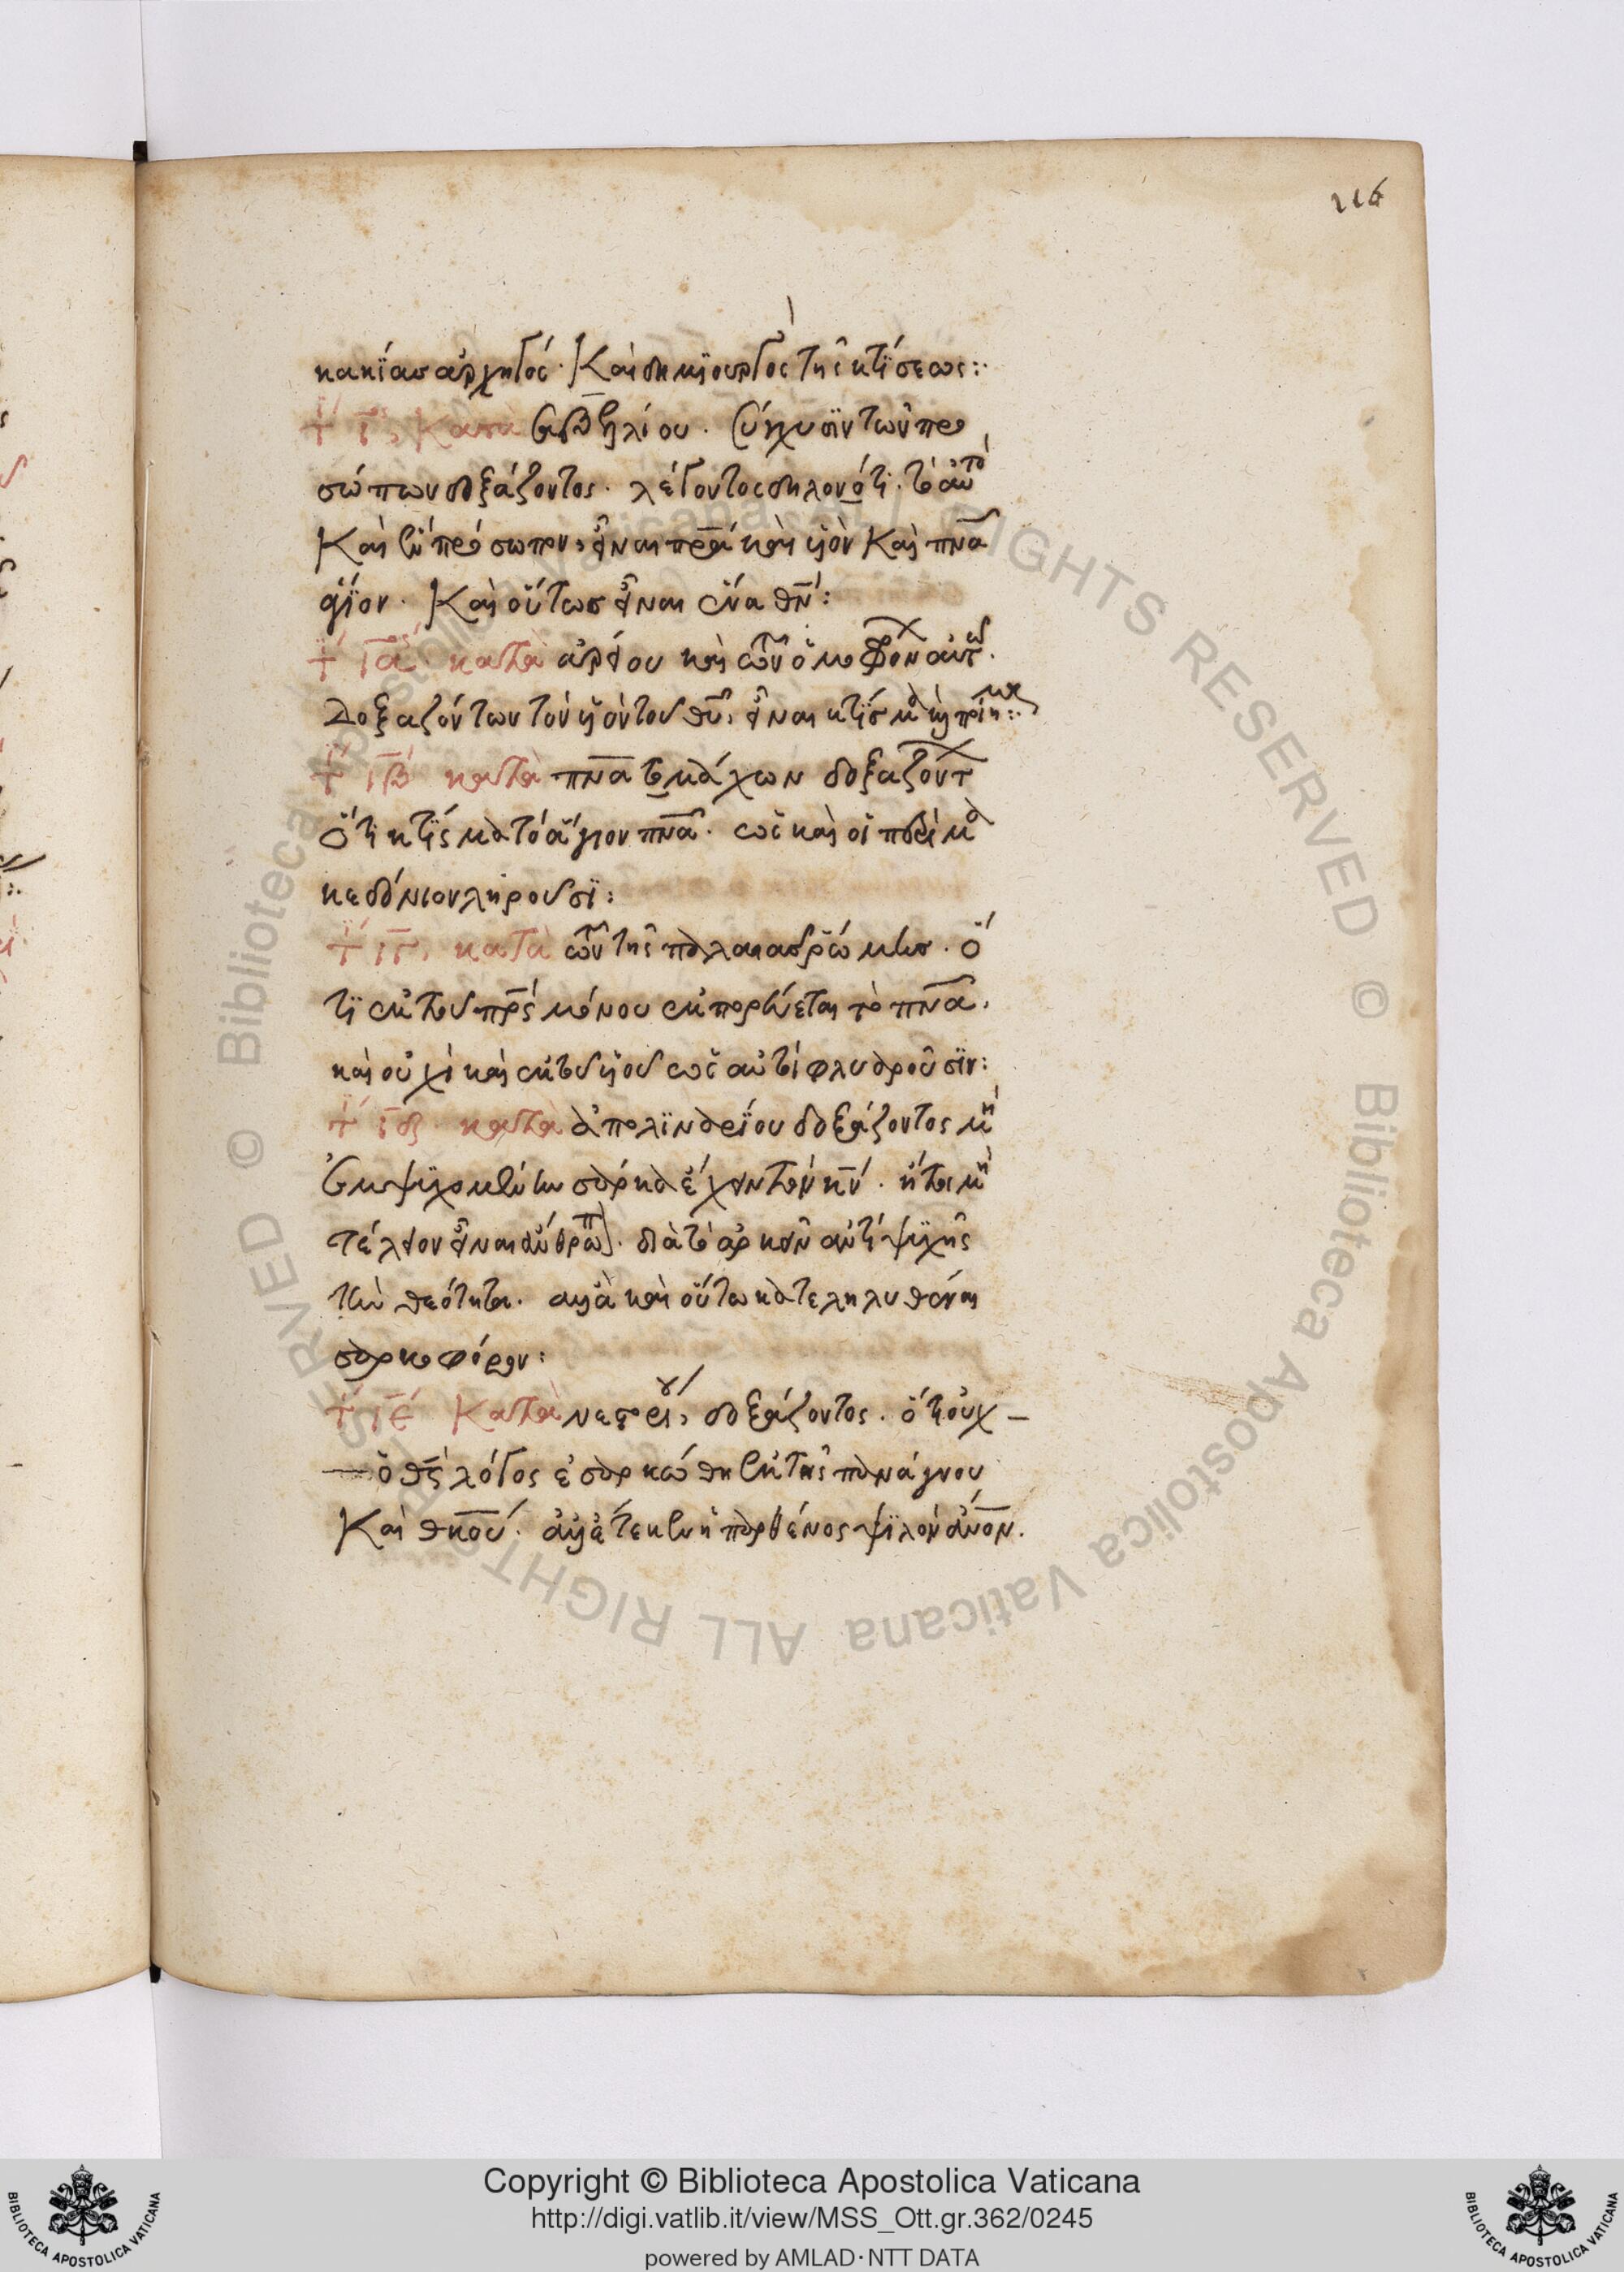 226
κακίας ἀρχηγός· Καὶ δημιουργὸς τῆς κτίσεως:·
Κατὰ σαβελλίου. σύγχυσιν τῶν προ
σώπων δοξάζοντος. λέγοντος δηλονότι. τὸ αὐτὸ
Καὶ ἓν πρόσωπον, εἶναι πρα καὶ υἱὸν Καὶ πνα
ἅγιον. Καὶ οὕτως εἶναι ἕνα θν:
ια κατὰ ἀρείου καὶ τῶν ὁμοφρόνων αὐτοῦ.
Δοξαζόντων τὸν υἱὸν τοῦ θυ, εἶναι κτίσμα καὶ ποίημα:
ιβ κατὰ πνατομάχων δοξαζόντων
ὅτι κτίσμα τὸ ἅγιον πνα. ὡς καὶ οἱ περὶ μα
κεδόνιον ληροῦσι:
ιγ κατὰ τῶν τῆς παλαιᾶς ῥώμης. ὅ
τι ἐκ τοῦ πρς μόνου ἐκπορεύεται τὸ πνα.
καὶ οὐχὶ καὶ ἐκ τοῦ υἱοῦ ὡς αὐτοὶ φλυαροῦσιν:
ιδ κατὰ ἀπολιναρίου δοξάζοντος μὴ
ἐμψυχομένην σάρκα ἔχειν τὸν κν. ἤτοι μὴ
τέλειον εἶναι ἄνθρωπον. διὰ τὸ ἀρκεῖν ἀντὶ ψυχῆς
τὴν θεότητα. ἀλλὰ καὶ οὕτω κατεληλυθέναι
σαρκοφόρον:
ιε Κατὰ νεστορίου, δοξάζοντος. ὅτι οὐχ
ὁ θς λόγος ἐσαρκώθη ἐκ τῆς πανάγνου
Καὶ θκου. ἀλλὰ ἔτεκεν ἡ παρθένος ψιλὸν ἀνον.
Copyright © Biblioteca Apostolica Vaticana
http://digi.vatlib.it/view/MSS_Ott.gr.362/0245
powered by AMLAD·NTT DATA
BIBLIOTECA APOSTOLICA VATICANA
BIBLIOTECA APOSTOLICA VATICANA
© Biblioteca Apostolica Vaticana ALL RIGHTS RESERVED © Biblioteca Apostolica Vaticana ALL RIGHTS RESERVED